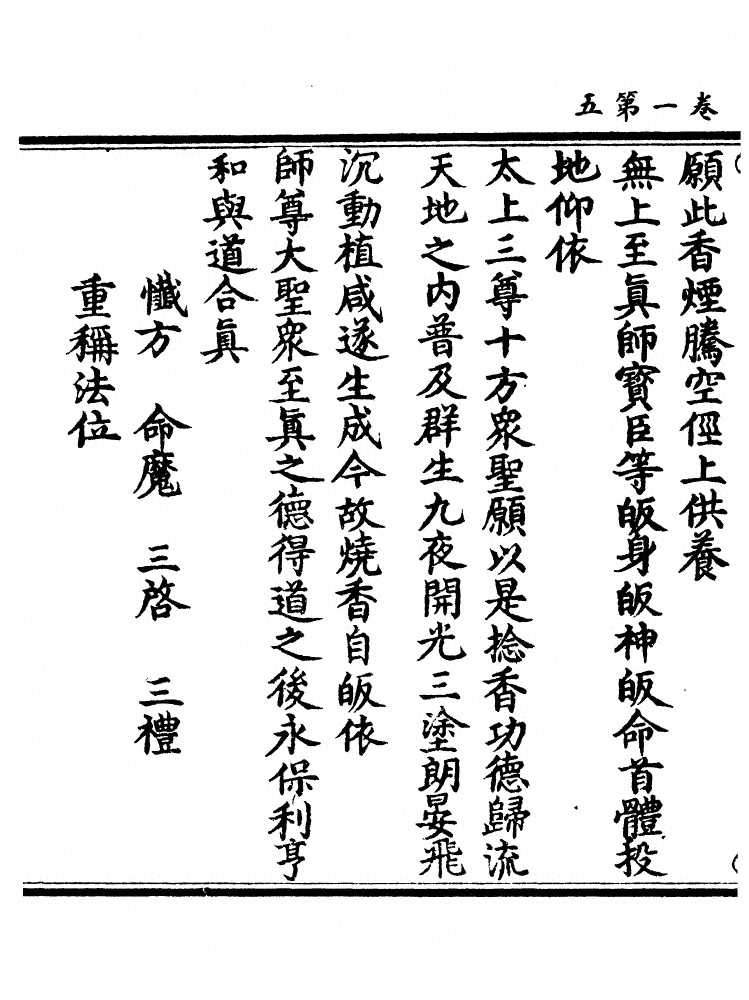 五第一卷
願此香煙騰空徑上供養
無上至眞師寳臣等皈身皈神皈命首體投
地仰依
太上三尊十方衆聖願以是捻香功德歸流
天地之內普及群生九夜開光三塗朗晏飛
沉動植咸遂生成今故燒香自皈依
師尊大聖衆至眞之德得道之後永保利亨
和與道合眞
懺方　命魔　三啓　三禮
重稱法位